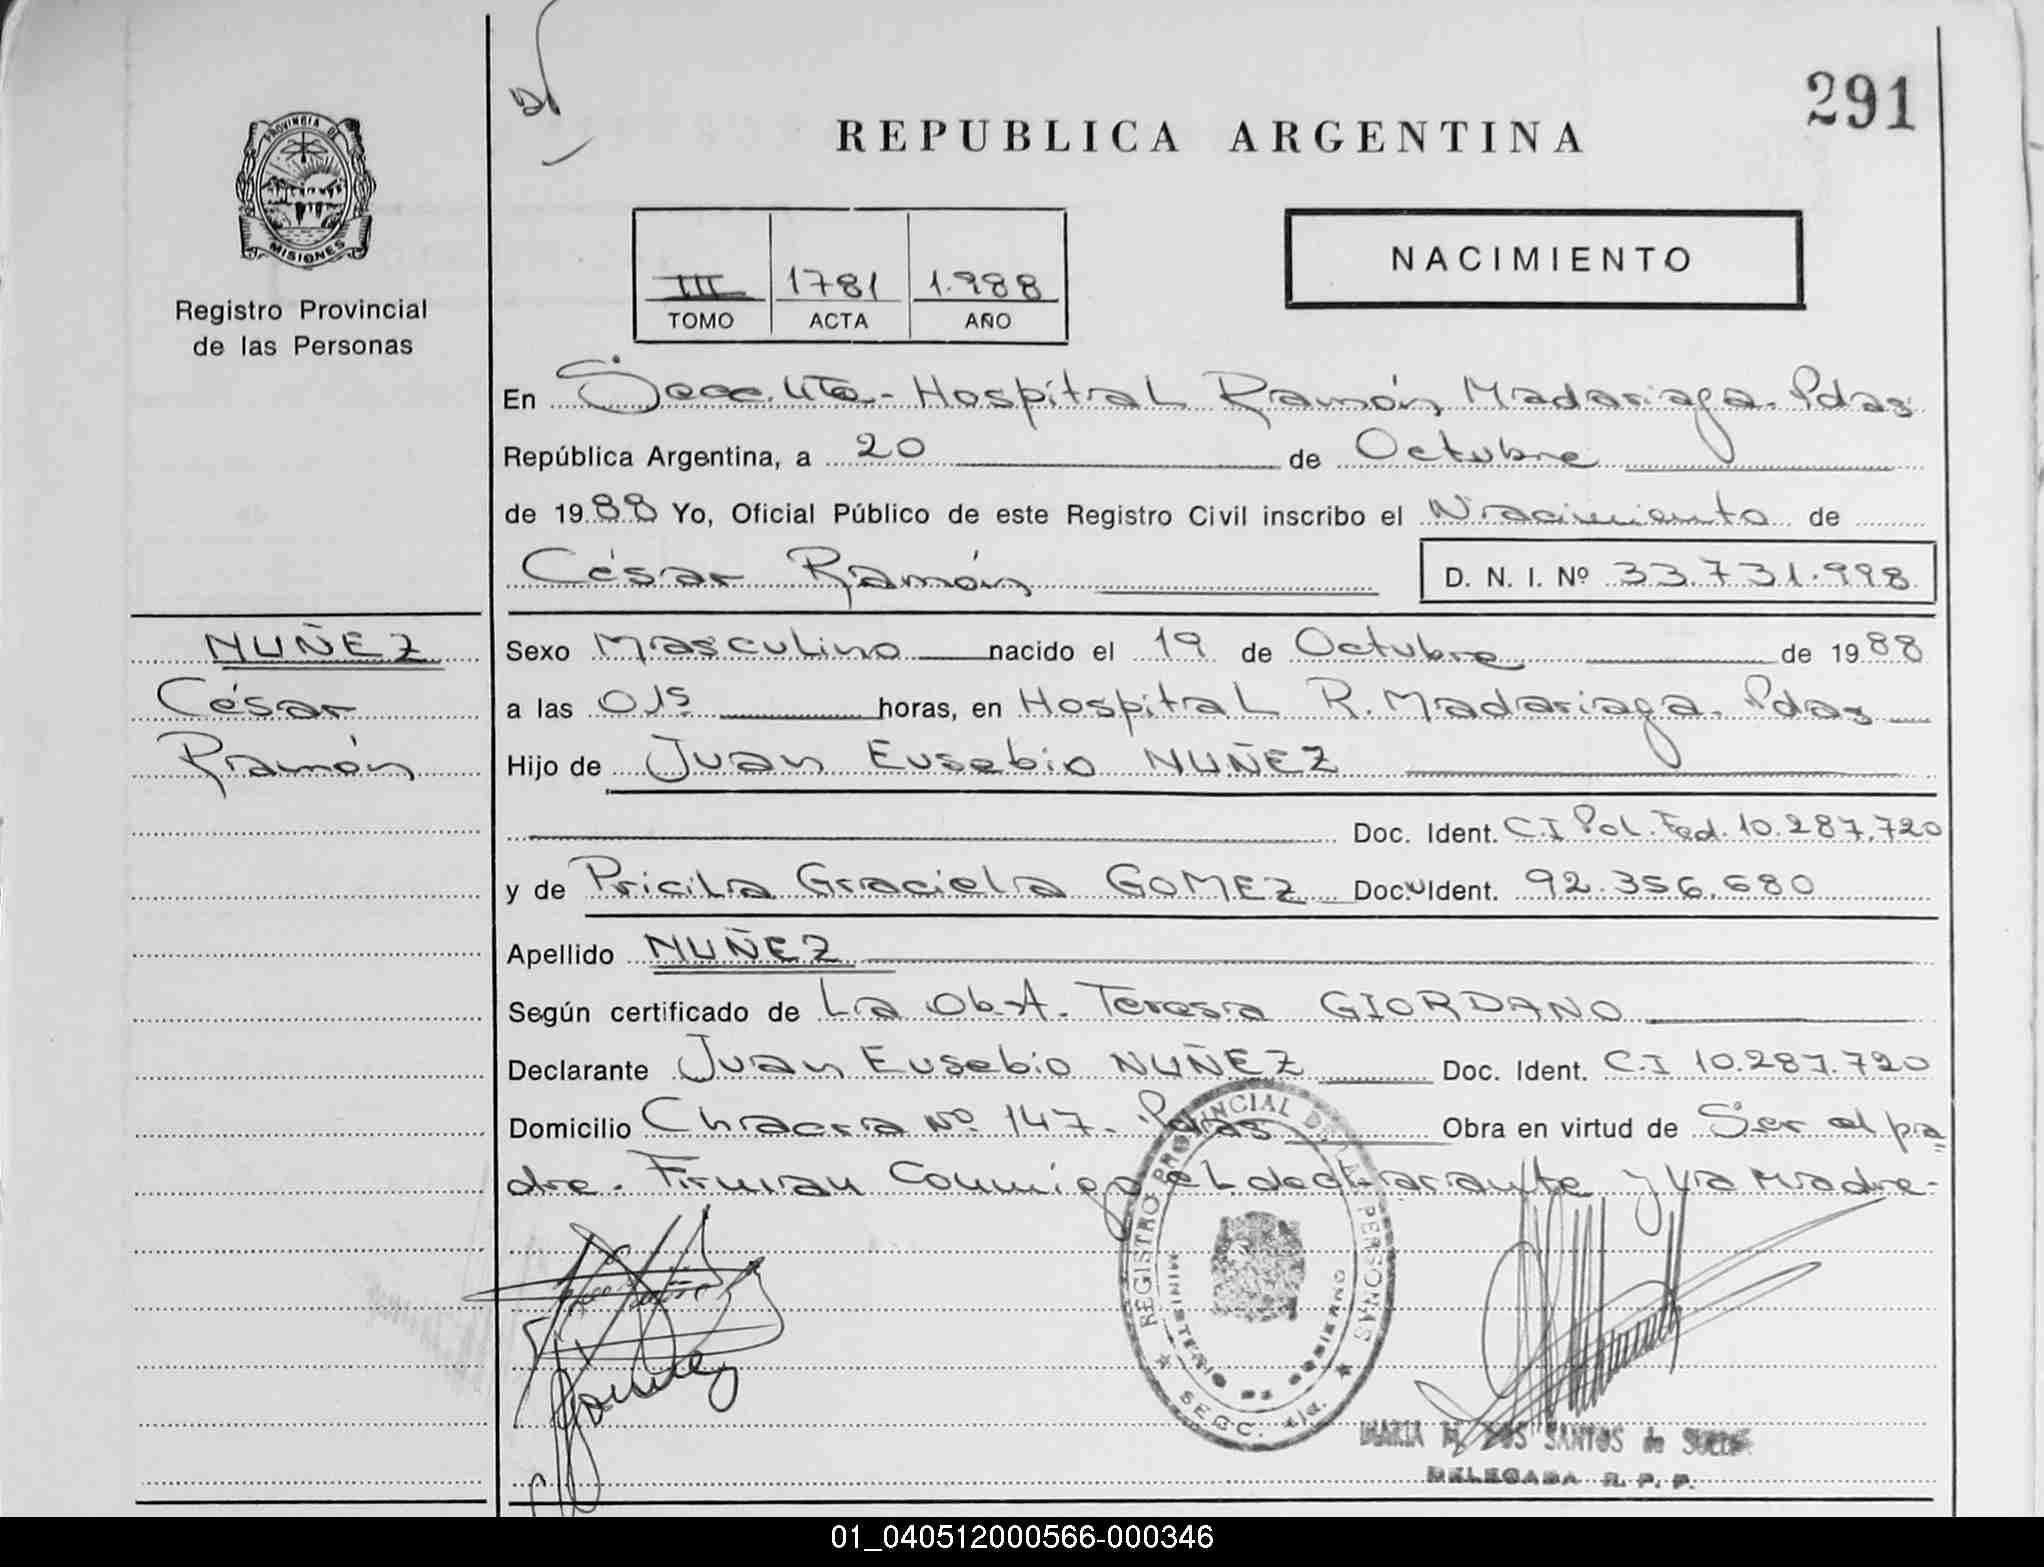 291
REPUBLICA ARGENTINA
PROVINCIA DE
MISIONES
Registro Provincial
de las Personas
III 1781 1.988
TOMO ACTA AÑO
NACIMIENTO
En Secc. 4ta - Hospital Ramón Madariaga. Pdas
República Argentina, a 20 de Octubre
de 1988 Yo, Oficial Público de este Registro Civil inscribo el Nacimiento de
César Ramón D. N. I. Nº 33.731.998
NUÑEZ
César
Ramón
Sexo Masculino nacido el 19 de Octubre de 1988
a las 01s horas, en Hospital R. Madariaga. Pdas
Hijo de Juan Eusebio NUÑEZ
Doc. Ident. C.I Pol. Fed. 10.287.720
y de Pricila Graciela GOMEZ Doc. Ident. 92.356.680
Apellido NUÑEZ
Según certificado de La Obst. Teresa GIORDANO
Declarante Juan Eusebio NUÑEZ Doc. Ident. C.I 10.287.720
Domicilio Chacra Nº 147. Pdas Obra en virtud de Ser el pa
dre. Firman Conmigo el declarante y la Madre-
REGISTRO PROVINCIAL DE LAS PERSONAS
MINISTERIO DE GOBIERNO
SECC. 4ta.
Gomez
MARIA DOS SANTOS de
DELEGADA R. P. P.
01_040512000566-000346